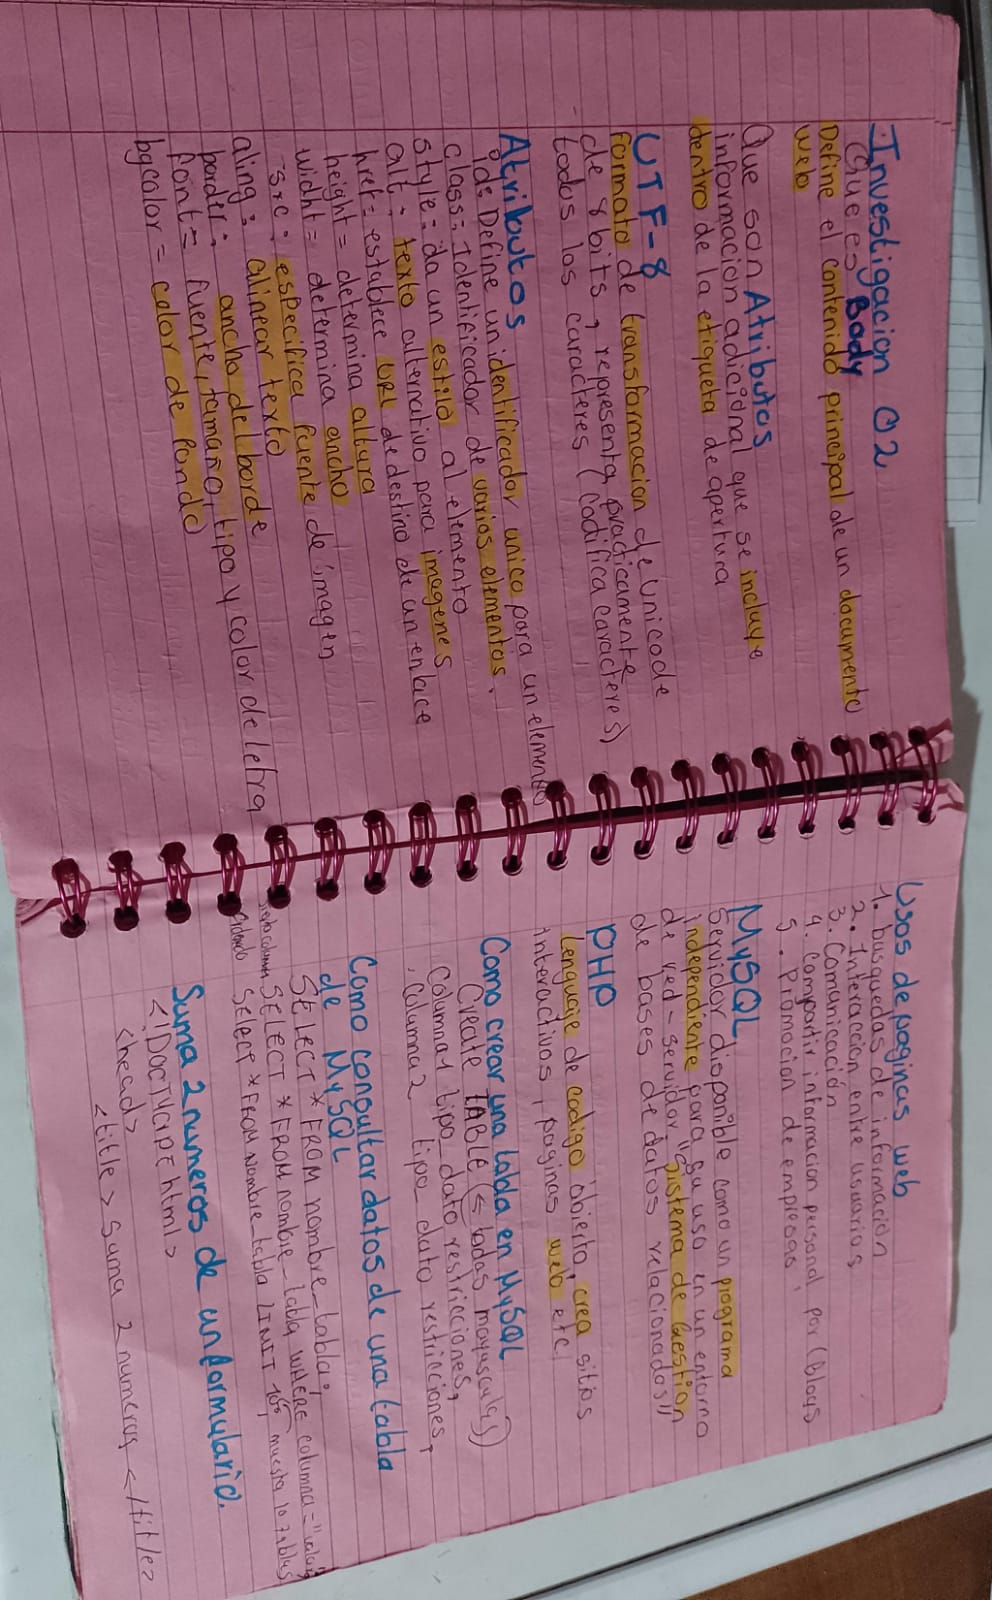 Investigacion 02
Que es Body
Define el contenido principal de un documento
web
Que son Atributos
informacion adicional que se incluye
dentro de la etiqueta de apertura
UTF-8
formato de transformacion de Unicode
de 8 bits, representa practicamente
todos los caracteres (codifica caracteres)
Atributos
id: Define un identificador unico para un elemento
class: Identificador de varios elementos.
style: da un estilo al elemento
alt: texto alternativo para imagenes
href= establece URL de destino de un enlace
height= determina altura
widht= determina ancho
src: especifica fuente de imagen
aling: alinear texto
border: ancho del borde
font= fuente, tamaño, tipo y color de letra
bgcolor= color de fondo
Usos de paginas web
1. busquedas de informacion
2. Interaccion entre usuarios
3. Comunicación
4. Compartir informacion personal por (blogs
5. Promocion de empresas
MySQL
Servidor disponible como un programa
independiente para su uso en un entorno
de red-servidor "sistema de Gestion
de bases de datos relacionados"
PHP
lenguaje de codigo abierto, crea sitios
interactivos, paginas web etc,
Como crear una tabla en MySQL
Create TABLE (todas mayusculas)
Columna1 tipo_dato restricciones,
Columna2 tipo_dato restricciones,
Como consultar datos de una tabla
de MySQL
SELECT * FROM nombre_tabla;
SELECT * FROM nombre_tabla WHERE columna="valor"
SELECT * FROM nombre tabla LIMIT 10; muestra 10 tablas
Suma 2 numeros de un formulario.
<!DOCTYPE html>
<head>
<title> Suma 2 numeros </title>